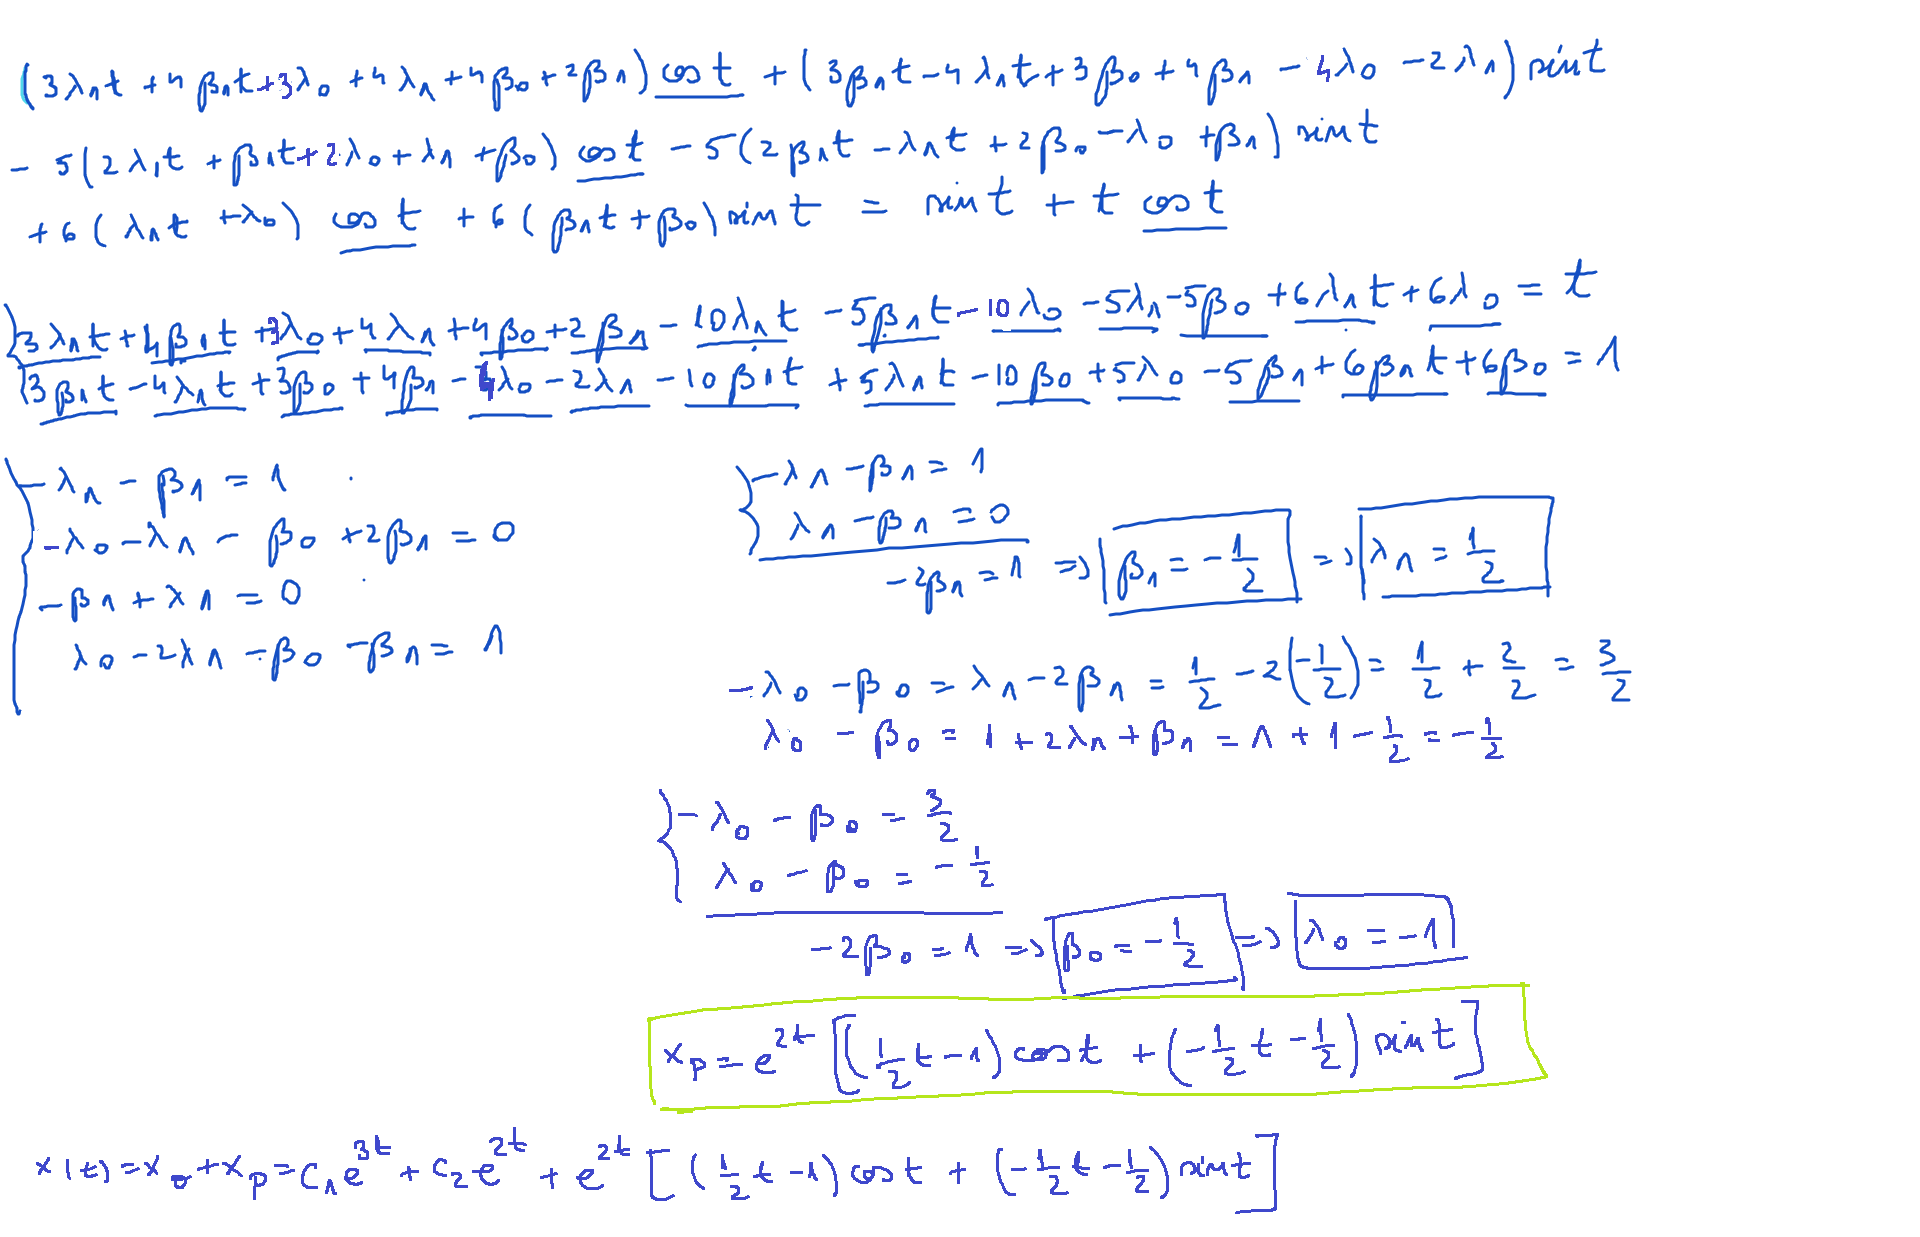 (3λ₁t + 4β₁t + 3λ₀ + 4λ₁ + 4β₀ + 2β₁) cos t + (3β₁t - 4λ₁t + 3β₀ + 4β₁ - 4λ₀ - 2λ₁) sin t
- 5(2λ₁t + β₁t + 2λ₀ + λ₁ + β₀) cos t - 5(2β₁t - λ₁t + 2β₀ - λ₀ + β₁) sin t
+ 6(λ₁t + λ₀) cos t + 6(β₁t + β₀) sin t = sin t + t cos t
{3λ₁t + 4β₁t + 3λ₀ + 4λ₁ + 4β₀ + 2β₁ - 10λ₁t - 5β₁t - 10λ₀ - 5λ₁ - 5β₀ + 6λ₁t + 6λ₀ = t
{3β₁t - 4λ₁t + 3β₀ + 4β₁ - 4λ₀ - 2λ₁ - 10β₁t + 5λ₁t - 10β₀ + 5λ₀ - 5β₁ + 6β₁t + 6β₀ = 1
{-λ₁ - β₁ = 1
-λ₀ - λ₁ - β₀ + 2β₁ = 0
-β₁ + λ₁ = 0
λ₀ - 2λ₁ - β₀ - β₁ = 1
{-λ₁ - β₁ = 1
λ₁ - β₁ = 0
-2β₁ = 1 => β₁ = -1/2 => λ₁ = 1/2
-λ₀ - β₀ = λ₁ - 2β₁ = 1/2 - 2(-1/2) = 1/2 + 2/2 = 3/2
λ₀ - β₀ = 1 + 2λ₁ + β₁ = 1 + 1 - 1/2 = -1/2
{-λ₀ - β₀ = 3/2
λ₀ - β₀ = -1/2
-2β₀ = 1 => β₀ = -1/2 => λ₀ = -1
xₚ = e^{2t} [(1/2 t - 1) cos t + (-1/2 t - 1/2) sin t]
x(t) = x₀ + xₚ = C₁e^{3t} + C₂e^{2t} + e^{2t} [(1/2 t - 1) cos t + (-1/2 t - 1/2) sin t]